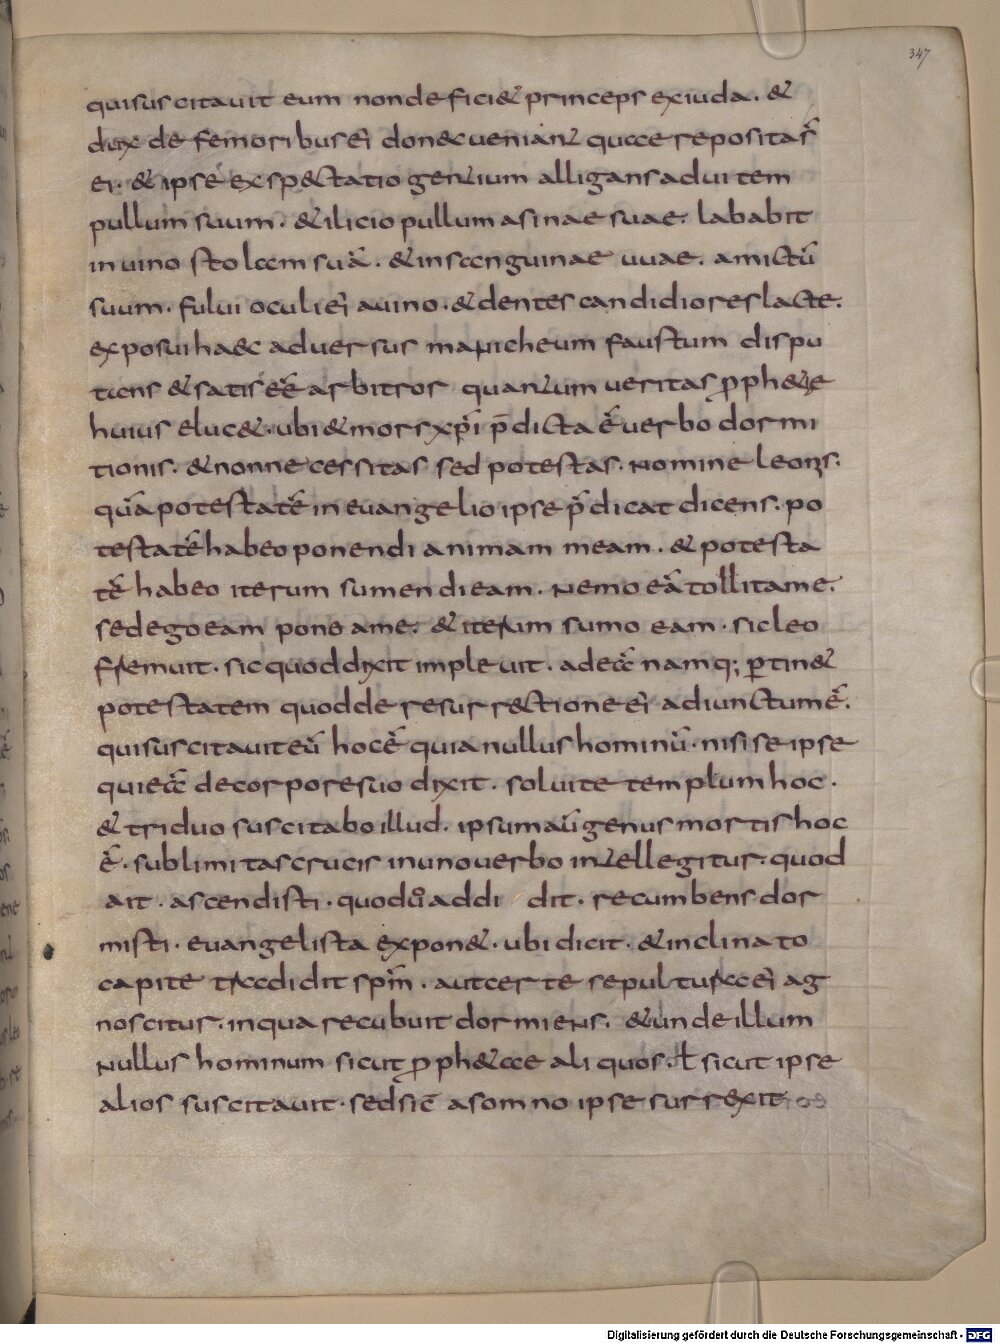 347
quisuscitauit eum nondeficiet princeps exiuda. &
dux de femoribus ei donecueniant quae reposita s̄
ei. & ipse exspectatio gentium alligans aduitem
pullum suum. & ilicio pullum asinae suae. lababit
inuino stolam suā. & insanguinae uuae. amictū
suum. fului oculi ei auino. & dentes candidiores lacte.
exposui haec aduersus manicheum faustum dispu
tans & satis eē arbitror quantum ueritas ꝓphetie
huius elucet. ubi & mors xp̄i p̄dicta ē uerbo dormi
tionis. & nonnecessitas sed potestas. Nomine leonis.
quā potestatē in euangelio ipse p̄dicat dicens. po
testatē habeo ponendi animam meam. & potesta
tē habeo iterum sumendi eam. Nemo eā tollit ame.
sed ego eam pono ame. & iterum sumo eam. sic leo
fremuit. sic quod dixit impleuit. ad eā namq; ꝑtinet
potestatem quod de resurrectione ei adiunctum ē.
quisuscitauit eū hoc ē quia nullus hominū. nisi se ipse
qui eā de corpore suo dixit. soluite templum hoc.
& triduo suscitabo illud. ipsum aū genus mortis hoc
ē. sublimitas crucis in uno uerbo intellegitur. quod
ait. ascendisti. quod uo addi dit. recumbens dor
misti. euangelista exponet. ubi dicit. & inclinato
capite tradidit spm̄. aut certe sepultura ei ag
noscitur. in qua recubuit dormiens. & unde illum
Nullus hominum sicut ꝓphetae aliquos. ł sicut ipse
alios suscitauit. sed sic̄ a somno ipse surrexit
Digitalisierung gefördert durch die Deutsche Forschungsgemeinschaft - DFG